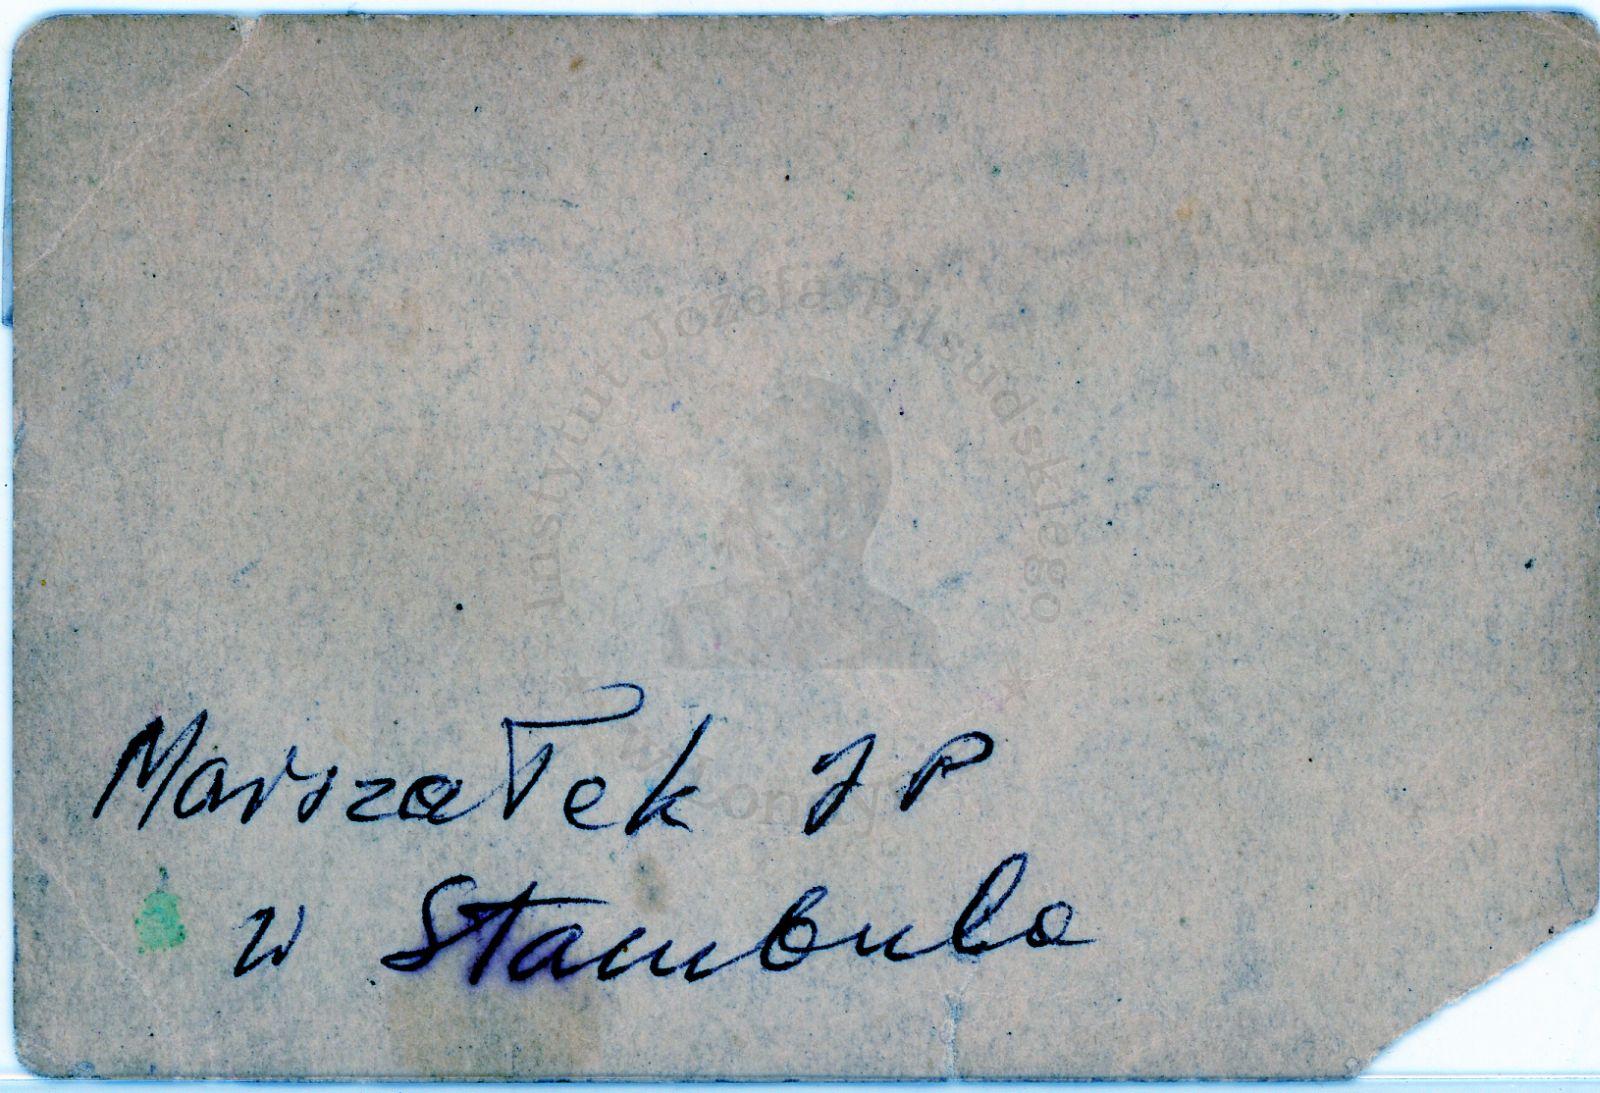 Instytut Józefa Piłsudskiego
Marszałek JP
w Stambule